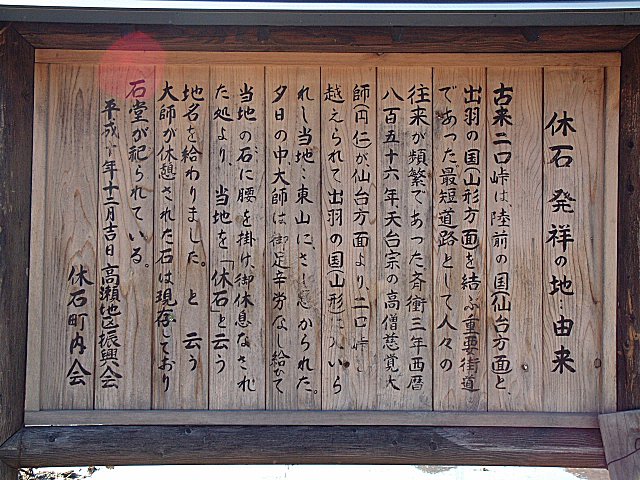 休石 発祥の地 由来
古来二口峠は陸前の国(仙台方面)と、
出羽の国(山形方面を結ぶ重要街道
であった。最短道路として人々の
往来が頻繁であった。斉衡三年西暦
八百五十六年天台宗の高僧慈覚大
師(円仁)が仙台方面より、二口峠を
越えられて出羽の国(山形)に入いら
れし当地、東山にさしかかられた。
夕日の中大師は御足辛労なし給いて
当地の石に腰を掛け御休息なされ
た処より、当地を「休石」と云う
地名を給わりました。と云う
大師が休憩された石は現存しており
石堂が祀られている。
平成 年十二月吉日 高瀬地区振興会
休石町内会